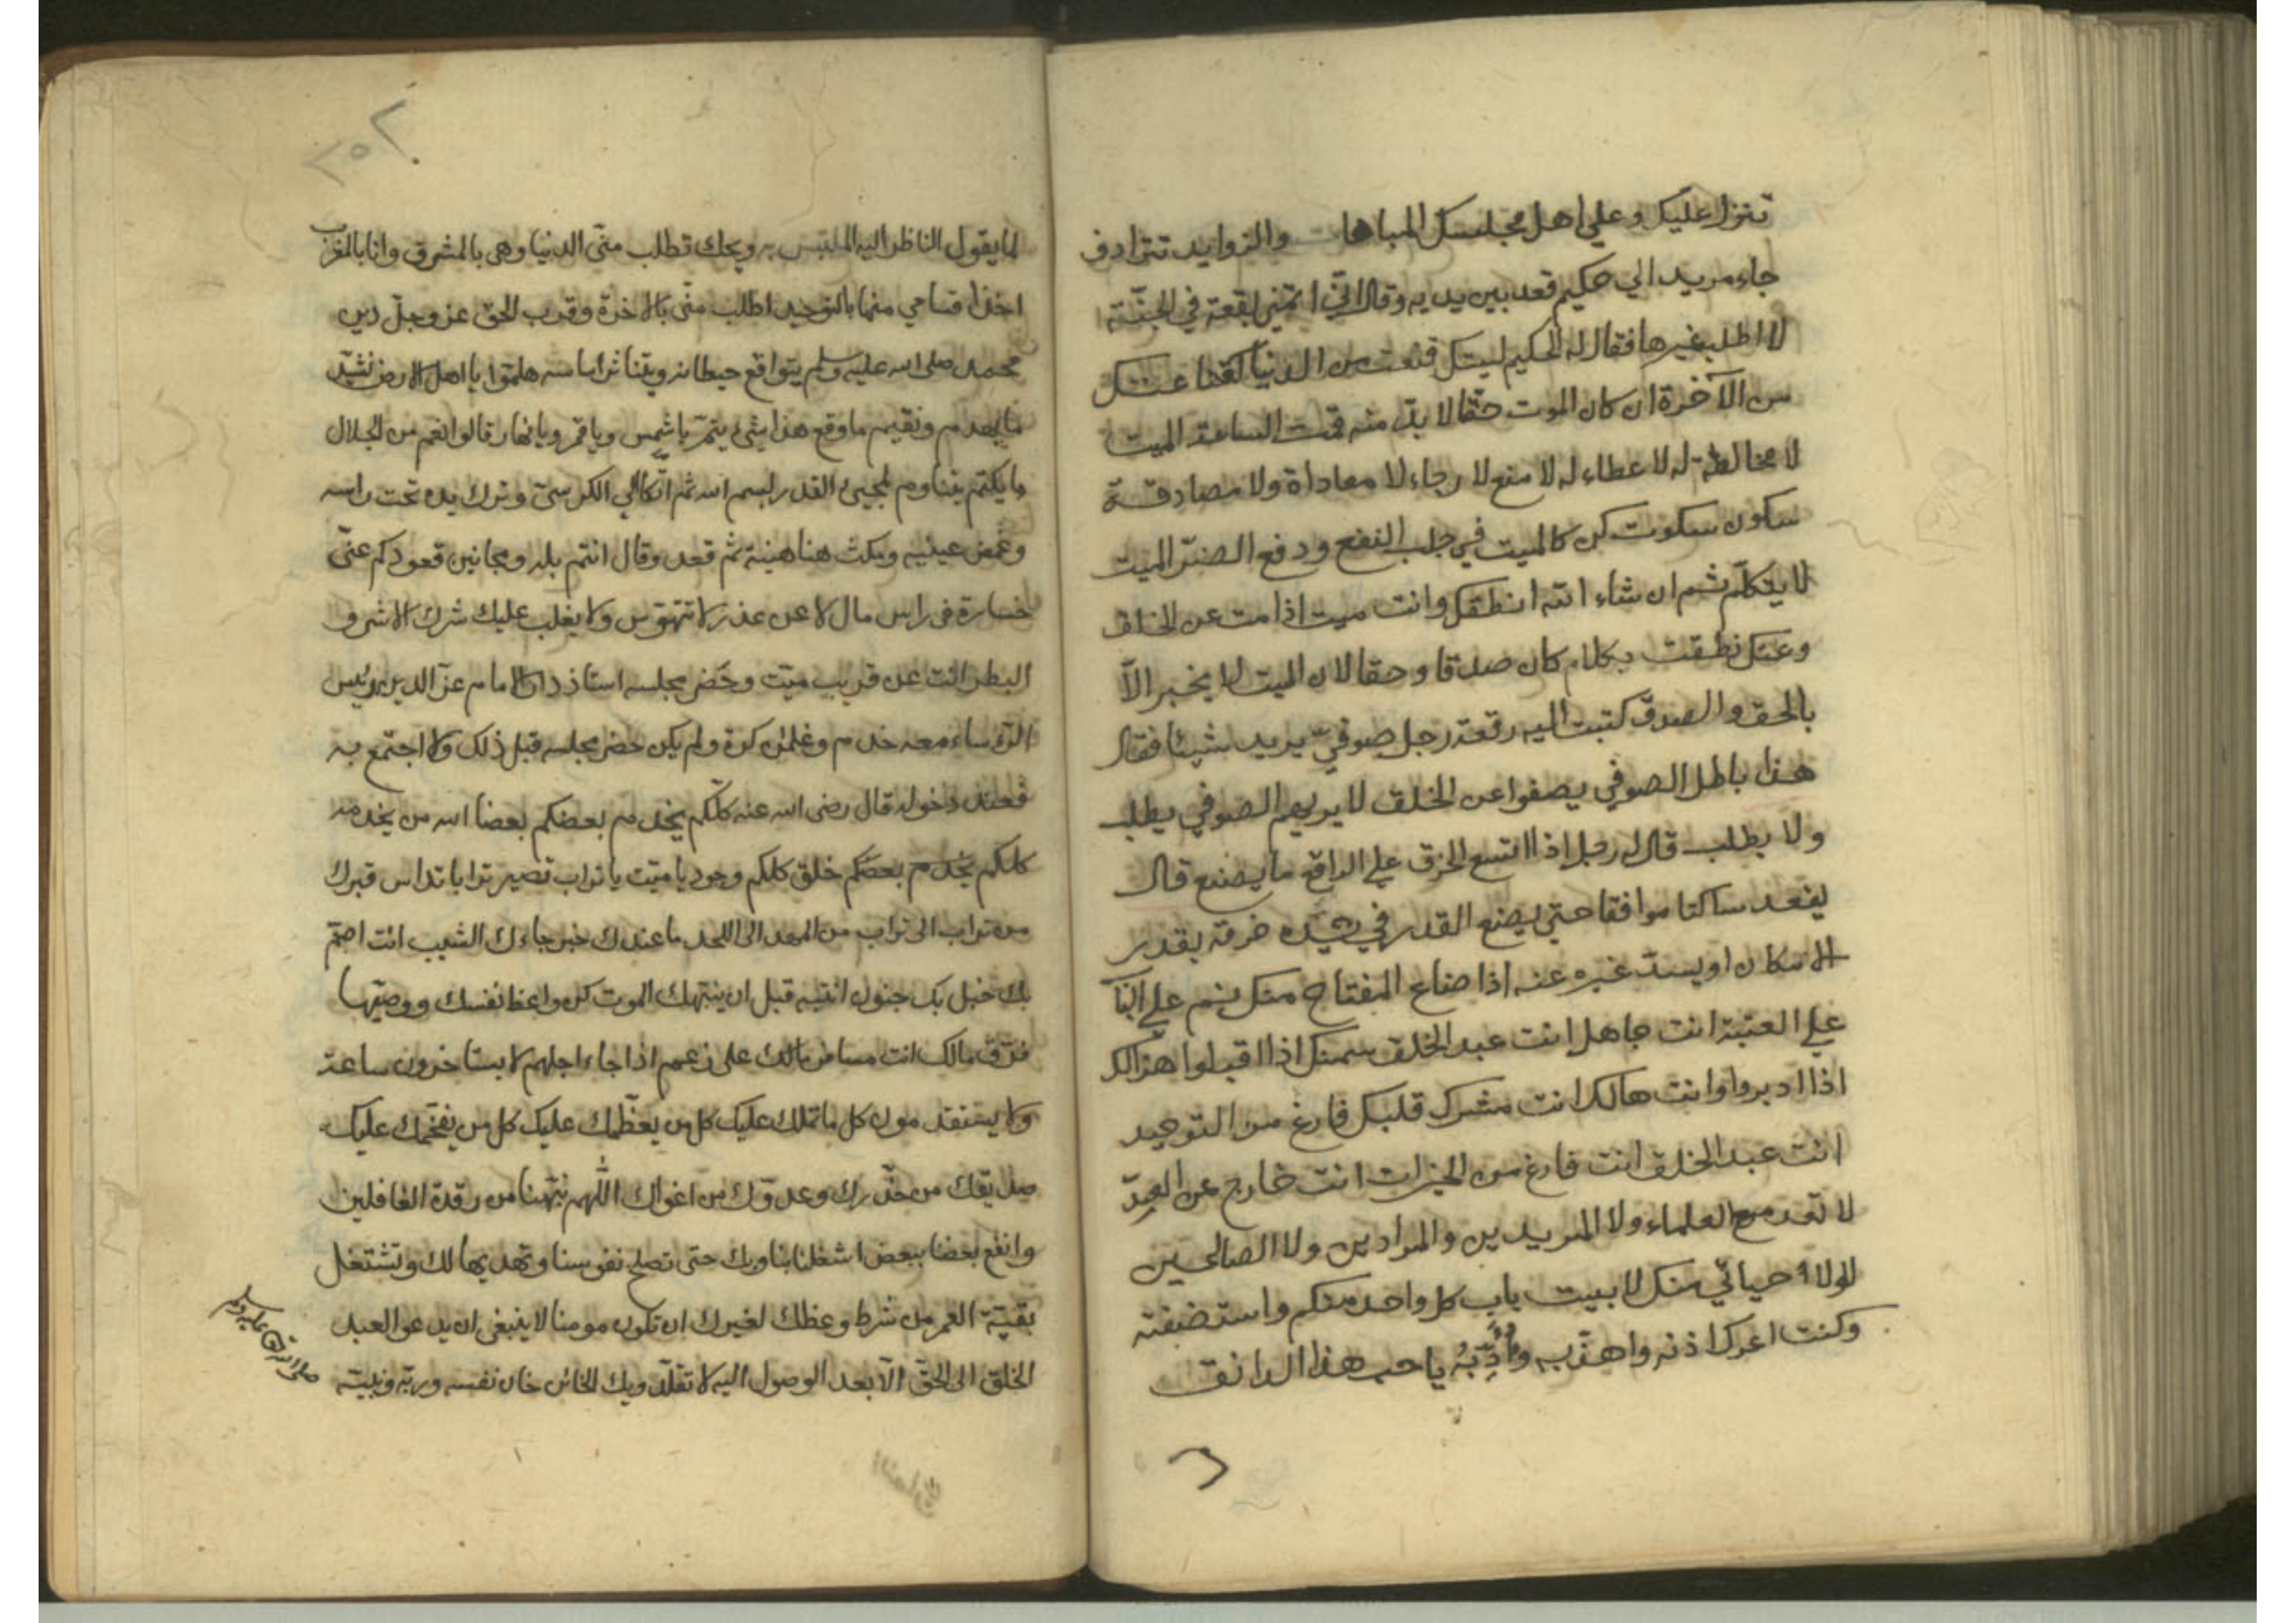 تنزل عليك وعلي اهل مجلسك المباهات والزوايد تترادف
جاء مريد الي حكيم قعد بين يديه وقال اني اتمني بقعة في الجنّة
لا اطلب غيرها فقال له الحكيم ليتك قنعت من الدنيا كقناعتك
من الآخرة ان كان الموت حقّا لا بدّ منه فمت الساعة الميت
لا مخالطة له لا عطاء له لا منع لا رجاء لا معاداة ولا مصادقة
سكون سكوت كن كالميت في جلب النفع ودفع الضرّ الميت
لا يتكلّم ثم ان شاء الله انطقك وانت ميت اذا مت عن الخلق
وعنك نطقت بكلام كان صدقا وحقا لان الميت لا يخبر الّا
بالحق والصدق كتبت اليه رقعة رجل صوفيّ يريد شيئا فقال
هذا باطل الصوفي يصفوا عن الخلق لا يريهم الصوفي يطلب
ولا يطلب قال له رجل اذا اتسع الخرق علي الراقع ما يصنع قال
يقعد ساكتا موافقا حتي يصنع القدر في يده خرقة بقدر
الامكان او يسدّ غيره عنه اذا ضاع المفتاح منك نم علي الباب
علي العتبة انت جاهل انت عبد الخلق سمنك اذا اقبلوا هزالك
اذا ادبروا وانت هالك انت مشرك قلبك فارغ من التوحيد
انت عبد الخلق انت فارغ من الخيرات انت خارج عن العدّ
لا تعد مع العلماء ولا المريدين والمرادين ولا الصالحين
لولا حيائي منك لاتيت باب كل واحد منكم واستضفته
وكنت اعرك اذنه واهذّبه وأُدِّبُهُ يا حب هذا الدانق
٢٥٢
لما يقول الناظر اليه الملتبس به ويحك تطلب منّي الدنيا وهي بالمشرق وانا بالمغرب
اخذ اقسامي منها بالتوحيد اطلب منّي بالاخرة وقرب الحق عز وجلّ دين
محمد صلى الله عليه وسلم يتواقع حيطانه ويتناثر اساسه هلمّوا يا اهل الارض نشيّد
ما انهدم ونقيم ما وقع هذا شئ يتمّ يا شمس ويا قمر ويا نهار قالوا نعم من الجلال
ما يكتم بيننا وم لمجيئ القدر بسم الله ثم اتكا الي الكرسيّ وترك يده تحت راسه
وغمض عينيه ومكث هناهنية ثم قعد وقال انتم بله ومجانين قعودكم عنّي
خسارة في راس مال لا عن عذر لا تتهوّس ولا يغلب عليك شرك الاشر و
البطر انت عن قريب ميّت وحضر مجلسه استاذ دار الامام عز الدين رئيس
الرّؤساء معه خدم وغلمان كرة ولم يكن حضر مجلسه قبل ذلك ولا اجتمع به
فعند دخوله قال رضى الله عنه كلّكم يخدم بعضكم بعضا الله من يخدمه
كلكم يخدم بعضكم خلق كلكم وجود يا ميّت يا تراب تصير ترابا تداس قبرك
من تراب الى تراب من المهد الى اللحد ما عندك خبر جاءك الشيب انت اصمّ
بك خبل بك جنون انتبه قبل ان ينبّهك الموت كن واعظ نفسك ووصيّها
فرّق مالك انت مسافر مالك على زعمهم اذا جاء اجلهم لا يستاخرون ساعة
ولا يستقدمون كل ما تملك عليك كل من يعظّمك عليك كل من يفخّمك عليك
صديقك من حذّرك وعدوّك من اغواك اللّهم نبّهنا من رقدة الغافلين
وانفع بعضنا ببعض اشغلنا بنا وبك حتى تصلح نفوسنا وتهديها لك وتشتغل
بقيّة العمر من شرط وعظك لغيرك ان تكون مومنا لا ينبغي ان يدعو العبد
الخلق الى الحقّ الّا بعد الوصول اليه لا تقلّد ويك الخائن خان نفسه وربّه ونبيّه
صلى الله تعا عليه وسلم